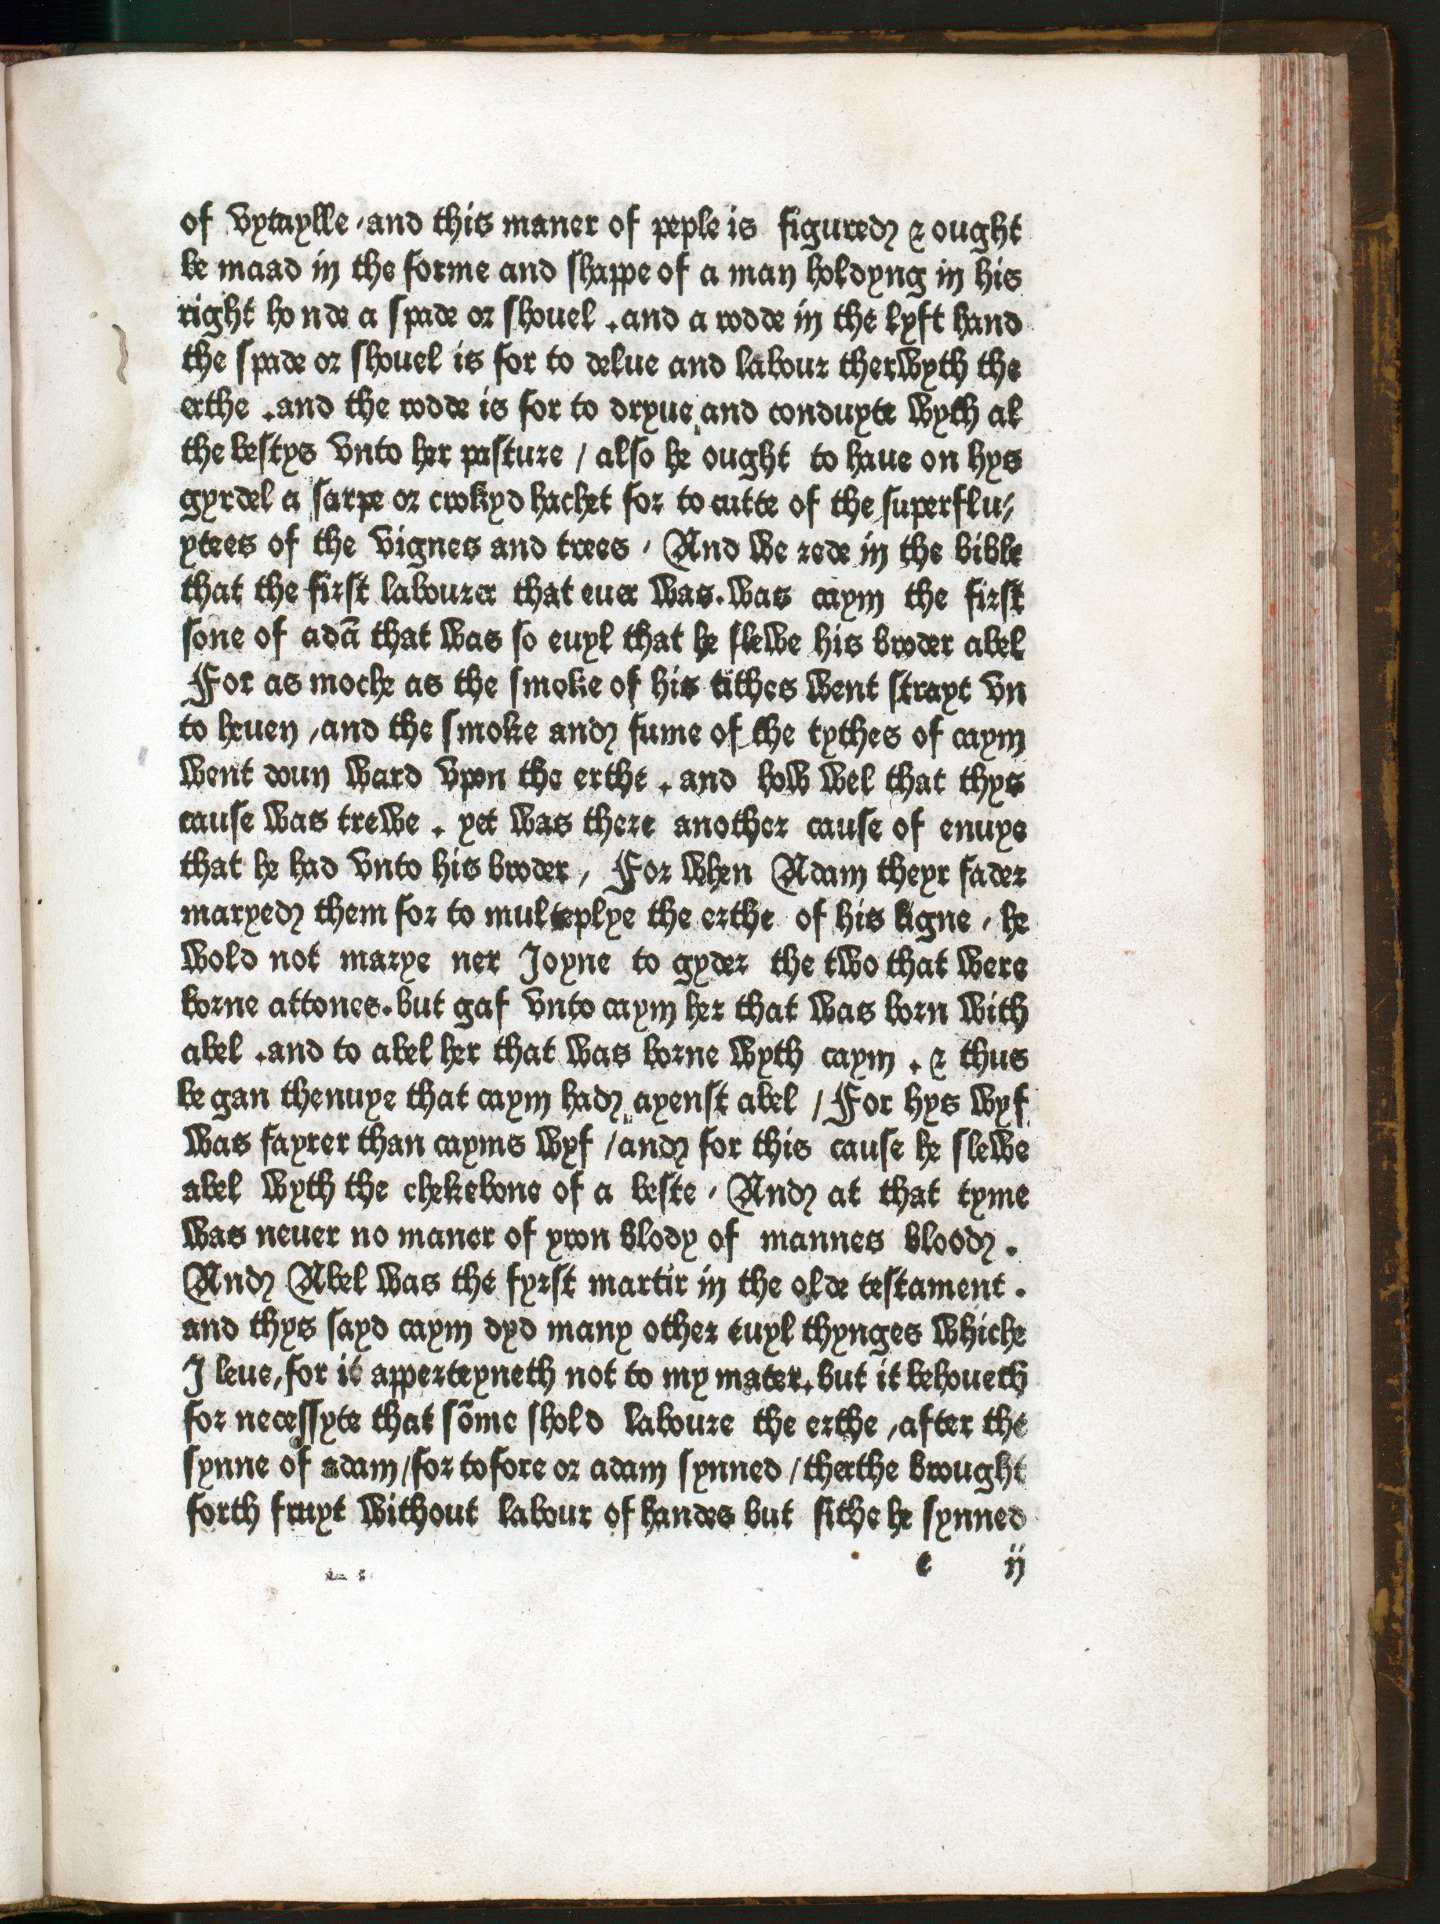 of vytaylle / and this maner of peple is figured & ought
be maad in the forme and shappe of a man holdyng in his
right honde a spade or shouel . and a rodde in the lyft hand
the spade or shouel is for to delue and labour therwyth the
erthe . and the rodde is for to dryue and conduyte wyth al
the bestys vnto her pasture / also he ought to haue on hys
gyrdel a sarpe or crokyd hachet for to cutte of the superflu/
ytees of the vignes and trees / And we rede in the bible
that the first labourer that euer was . was caym the first
sone of adā that was so euyl that he slewe his broder abel
For as moche as the smoke of his tithes went strayt vn
to heuen / and the smoke and fume of the tythes of caym
went doun ward vpon the erthe . and how wel that thys
cause was trewe . yet was there another cause of enuye
that he had vnto his broder / For when Adam theyr fader
maryed them for to multeplye the erthe of his ligne / he
wold not marye ner Joyne to gyder the two that were
borne attones . but gaf vnto caym her that was born with
abel . and to abel her that was borne wyth caym . & thus
be gan thenuye that caym had ayenst abel / For hys wyf
was fayrer than cayms wyf / and for this cause he slewe
abel wyth the chekebone of a beste / And at that tyme
was neuer no maner of yron blody of mannes blood .
And Abel was the fyrst martir in the olde testament .
and thys sayd caym dyd many other euyl thynges whiche
I leue / for it apperteyneth not to my mater . but it behoueth
for necessyte that sōme shold laboure the erthe / after the
synne of adam / for tofore or adam synned / therthe brought
forth fruyt without labour of handes but sithe he synned
e ij